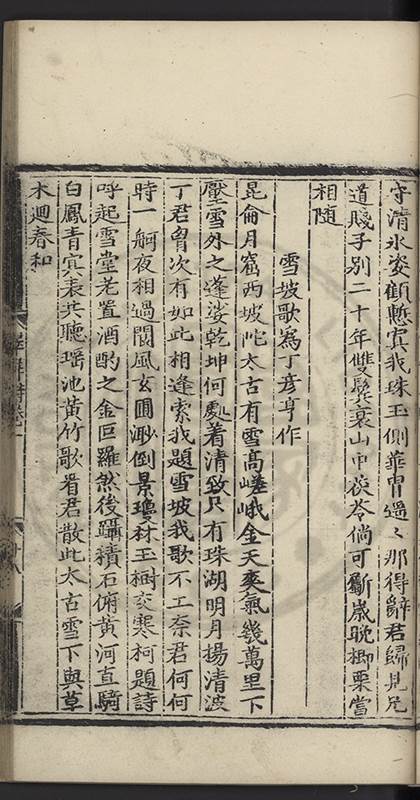 守清氷姿顧慙寘我珠玉側華胄遥々那得辭君歸見兄
道賤子別二十年雙鬢衰山中茯苓倘可斸歲晚楖栗當
相随
雪坡歌爲丁彦亨作
崑侖月窟西坡陀太古有雪高嵯峨金天爽氣幾萬里下
壓雪外之蓬婆乾坤何處着清致只有珠湖明月揚清波
丁君胷次有如此相逢索我題雪坡我歌不工奈君何何
時一舸夜相過閬風玄圃渺倒景瓊林玉樹交寒柯題詩
呼起雪堂老置酒酌之金叵羅然後躡積石俯黄河直騎
白鳳青寘表共聽瑶池黄竹歌看君散此太古雪下與草
木廻春和